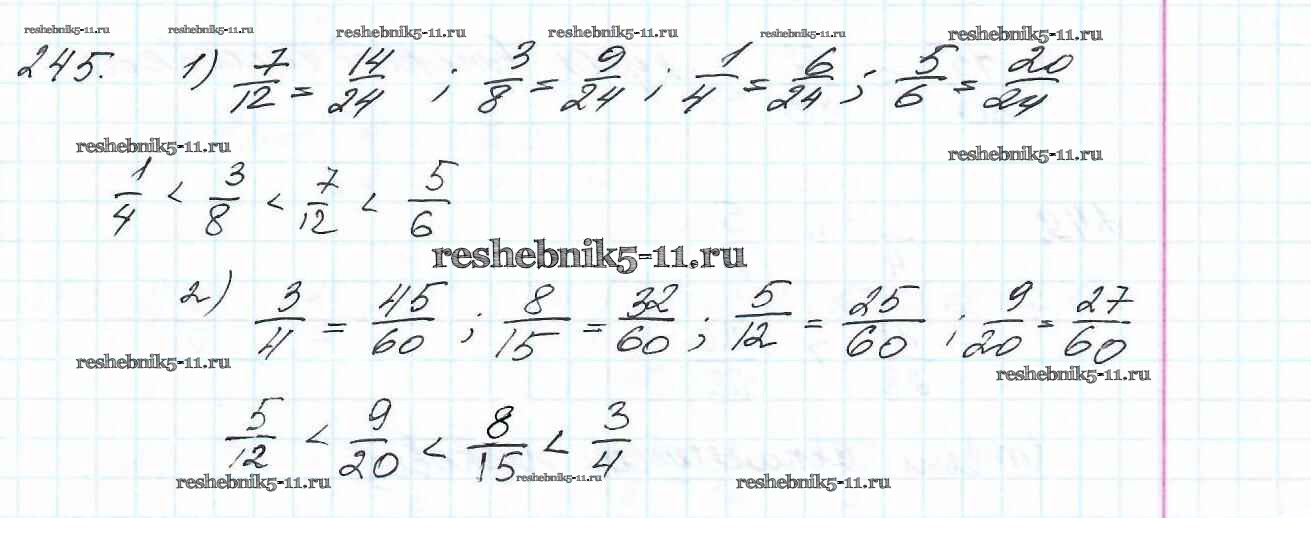 reshebnik5-11.ru reshebnik5-11.ru reshebnik5-11.ru reshebnik5-11.ru reshebnik5-11.ru reshebnik5-11.ru
245. 1) 7/12 = 14/24 ; 3/8 = 9/24 ; 1/4 = 6/24 ; 5/6 = 20/24
reshebnik5-11.ru reshebnik5-11.ru
1/4 < 3/8 < 7/12 < 5/6
reshebnik5-11.ru
2) 3/4 = 45/60 ; 8/15 = 32/60 ; 5/12 = 25/60 ; 9/20 = 27/60
reshebnik5-11.ru reshebnik5-11.ru
5/12 < 9/20 < 8/15 < 3/4
reshebnik5-11.ru reshebnik5-11.ru reshebnik5-11.ru